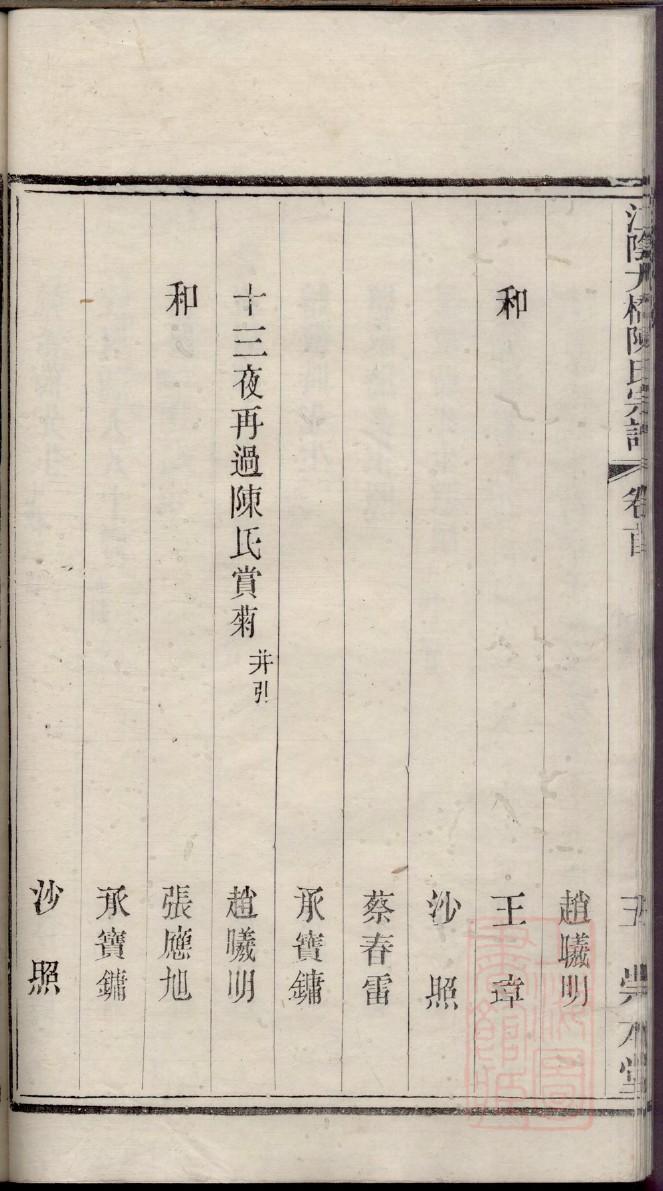 江陰九橋陳氏宗譜 卷首 五 崇本堂
趙曦明
和 王璋
沙照
蔡春雷
承寶鏞
十三夜再過陳氏賞菊 并引 趙曦明
和 張應旭
承寶鏞
沙照